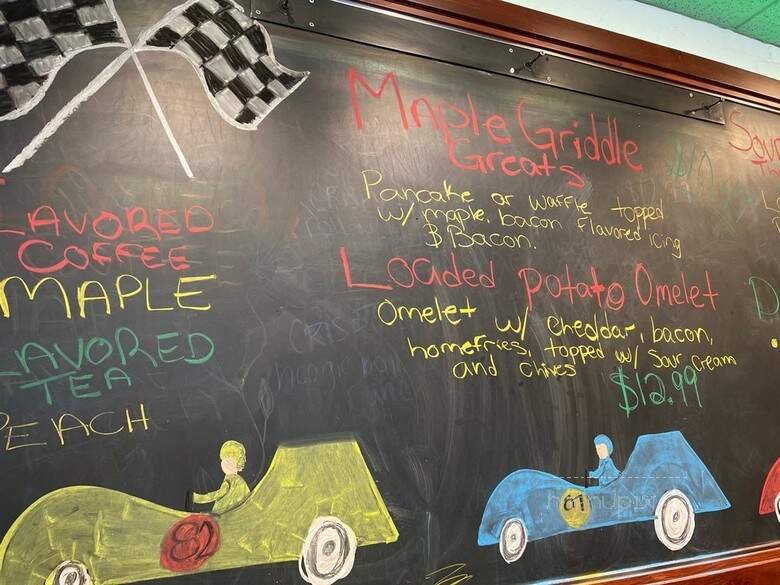 LAVORED
COFFEE
MAPLE
LAVORED
TEA
PEACH
82
Maple Griddle
Greats
Pancake or waffle topped
w/ maple, bacon flavored icing
$ Bacon.
Loaded potato Omelet
Omelet w/ cheddar, bacon,
homefries, topped w/ sour cream
and chives
$12.99
61
Sour